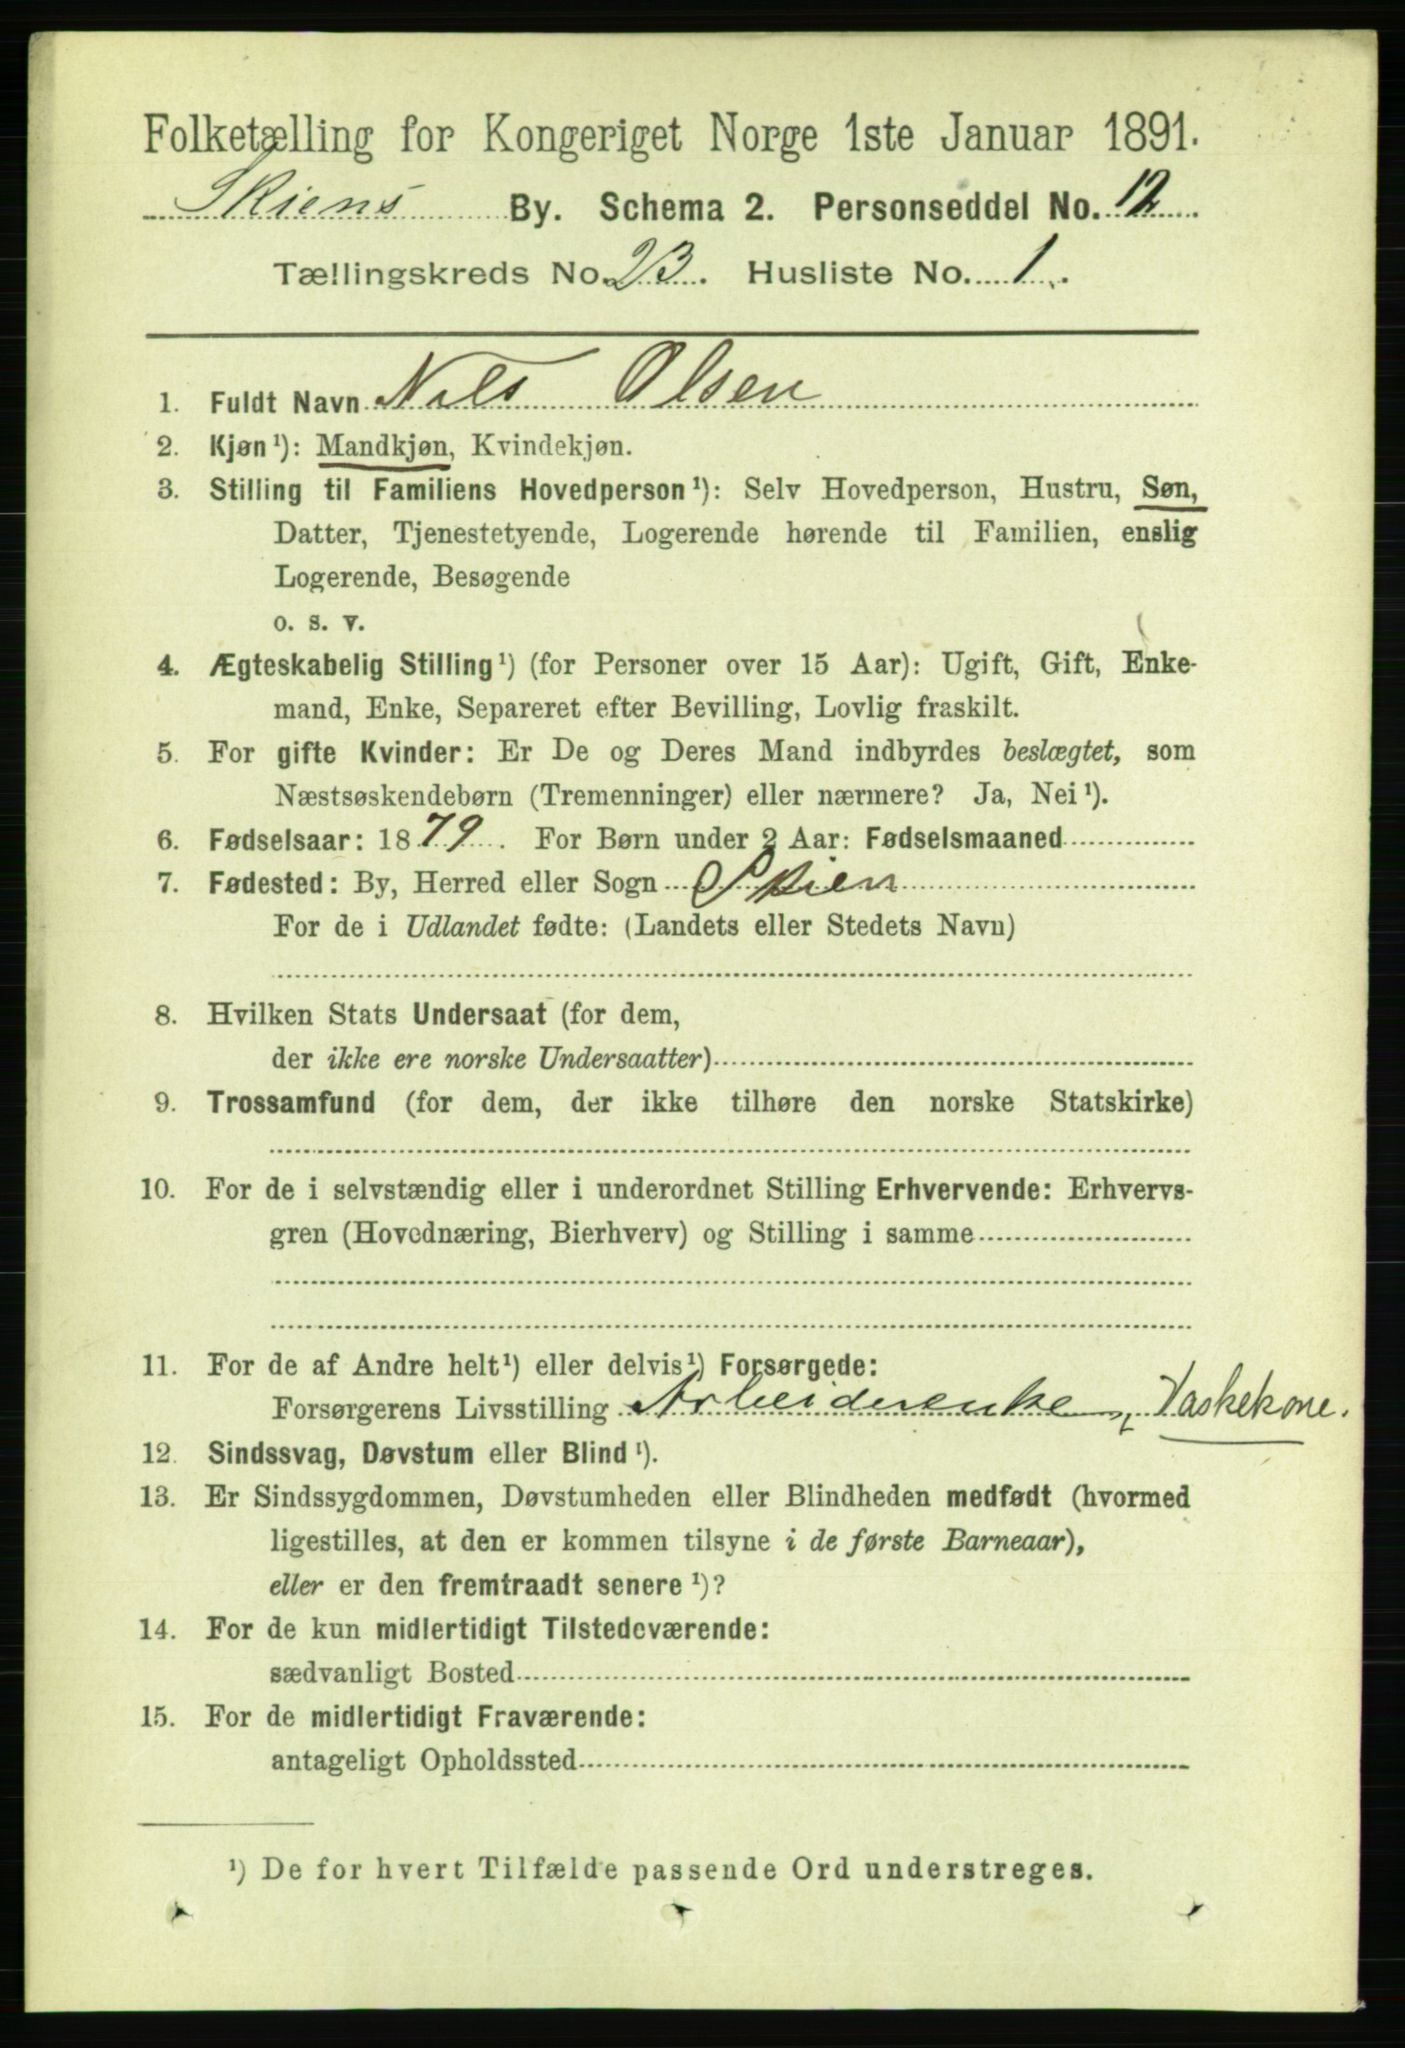 Folketælling for Kongeriget Norge 1ste Januar 1891.
Skiens By. Schema 2. Personseddel No. 12
Tællingskreds No. 23. Husliste No. 1.
1. Fuldt Navn Nils Olsen
2. Kjøn¹): Mandkjøn, Kvindekjøn.
3. Stilling til Familiens Hovedperson¹): Selv Hovedperson, Hustru, Søn,
Datter, Tjenestetyende, Logerende hørende til Familien, enslig
Logerende, Besøgende
o. s. v.
4. Ægteskabelig Stilling¹) (for Personer over 15 Aar): Ugift, Gift, Enke-
mand, Enke, Separeret efter Bevilling, Lovlig fraskilt.
5. For gifte Kvinder: Er De og Deres Mand indbyrdes beslægtet, som
Næstsøskendebørn (Tremenninger) eller nærmere? Ja, Nei¹).
6. Fødselsaar: 1879. For Børn under 2 Aar: Fødselsmaaned
7. Fødested: By, Herred eller Sogn Skien
For de i Udlandet fødte: (Landets eller Stedets Navn)
8. Hvilken Stats Undersaat (for dem,
der ikke ere norske Undersaatter)
9. Trossamfund (for dem, der ikke tilhøre den norske Statskirke)
10. For de i selvstændig eller i underordnet Stilling Erhvervende: Erhvervs-
gren (Hovednæring, Bierhverv) og Stilling i samme
11. For de af Andre helt¹) eller delvis¹) Forsørgede:
Forsørgerens Livsstilling Arbeiderenke, Vaskekone.
12. Sindssvag, Døvstum eller Blind¹).
13. Er Sindssygdommen, Døvstumheden eller Blindheden medfødt (hvormed
ligestilles, at den er kommen tilsyne i de første Barneaar),
eller er den fremtraadt senere¹)?
14. For de kun midlertidigt Tilstedeværende:
sædvanligt Bosted
15. For de midlertidigt Fraværende:
antageligt Opholdssted
¹) De for hvert Tilfælde passende Ord understreges.